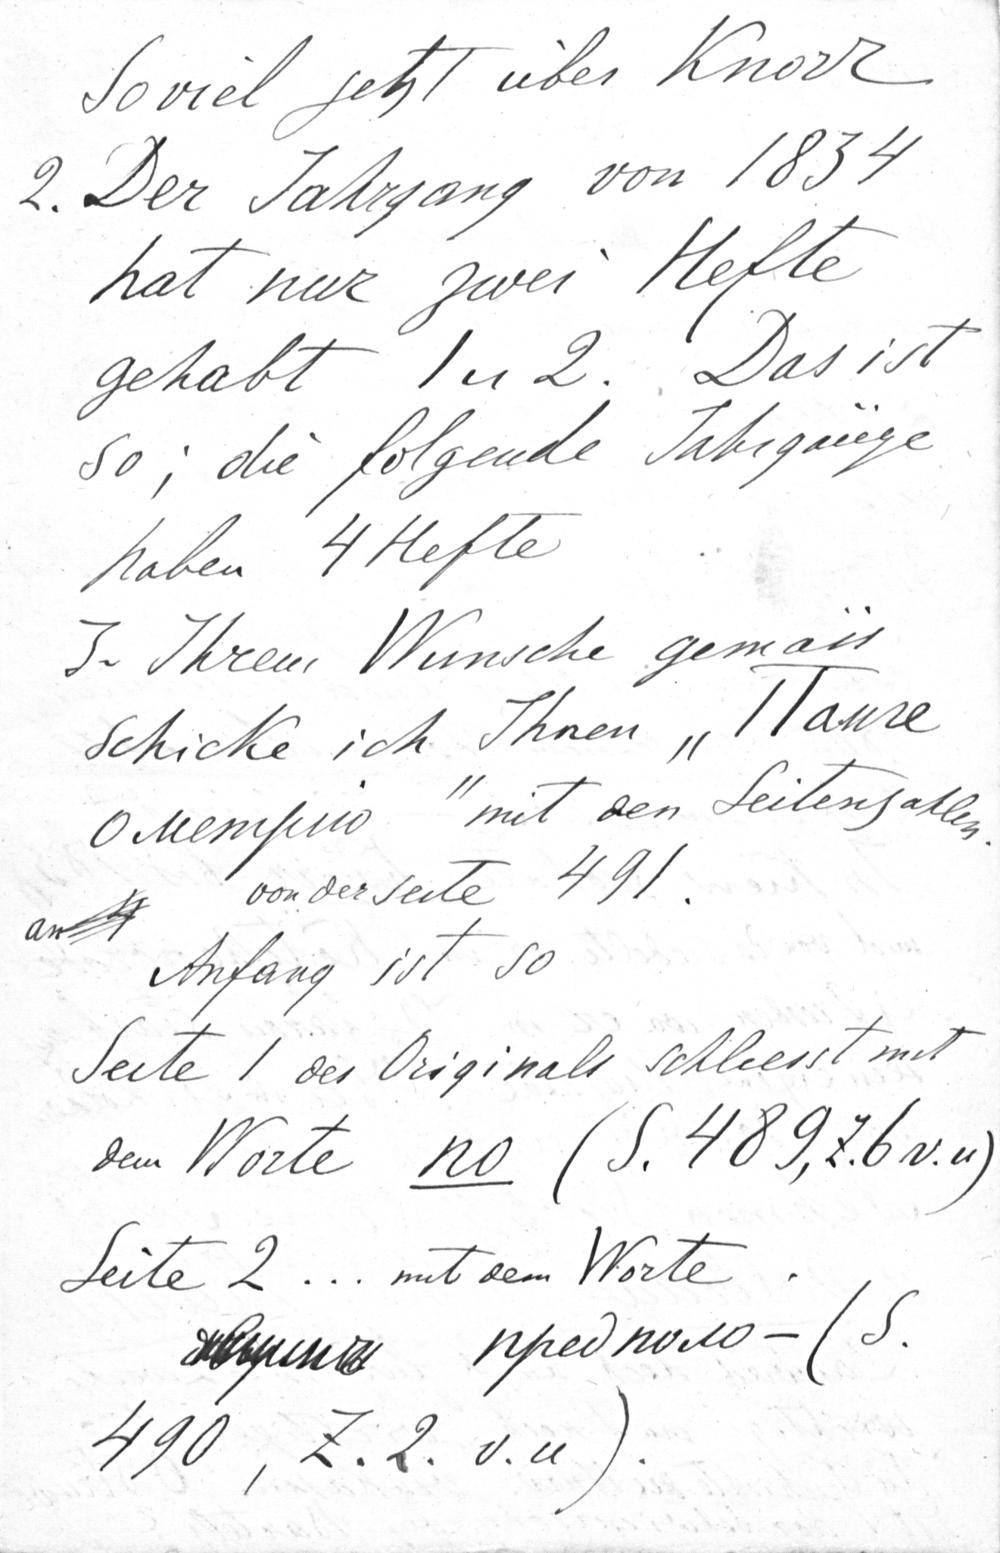 Soviel jetzt über Knorr
2. Der Jahrgang von 1834
hat nur zwei Hefte
gehabt 1 u 2. Das ist
so; die folgende Jahrgänge
haben 4 Hefte
3. Ihrem Wunsche gemäss
schicke ich Ihnen „Пание
" mit den Seitenzahlen.
von der Seite 491.
an
Anfang ist so
Seite 1 des Originals schliesst mit
dem Worte по (S. 489, Z. 6 v. u)
Seite 2 ... mit dem Worte
предполо- (S.
490, Z. 2. v. u).